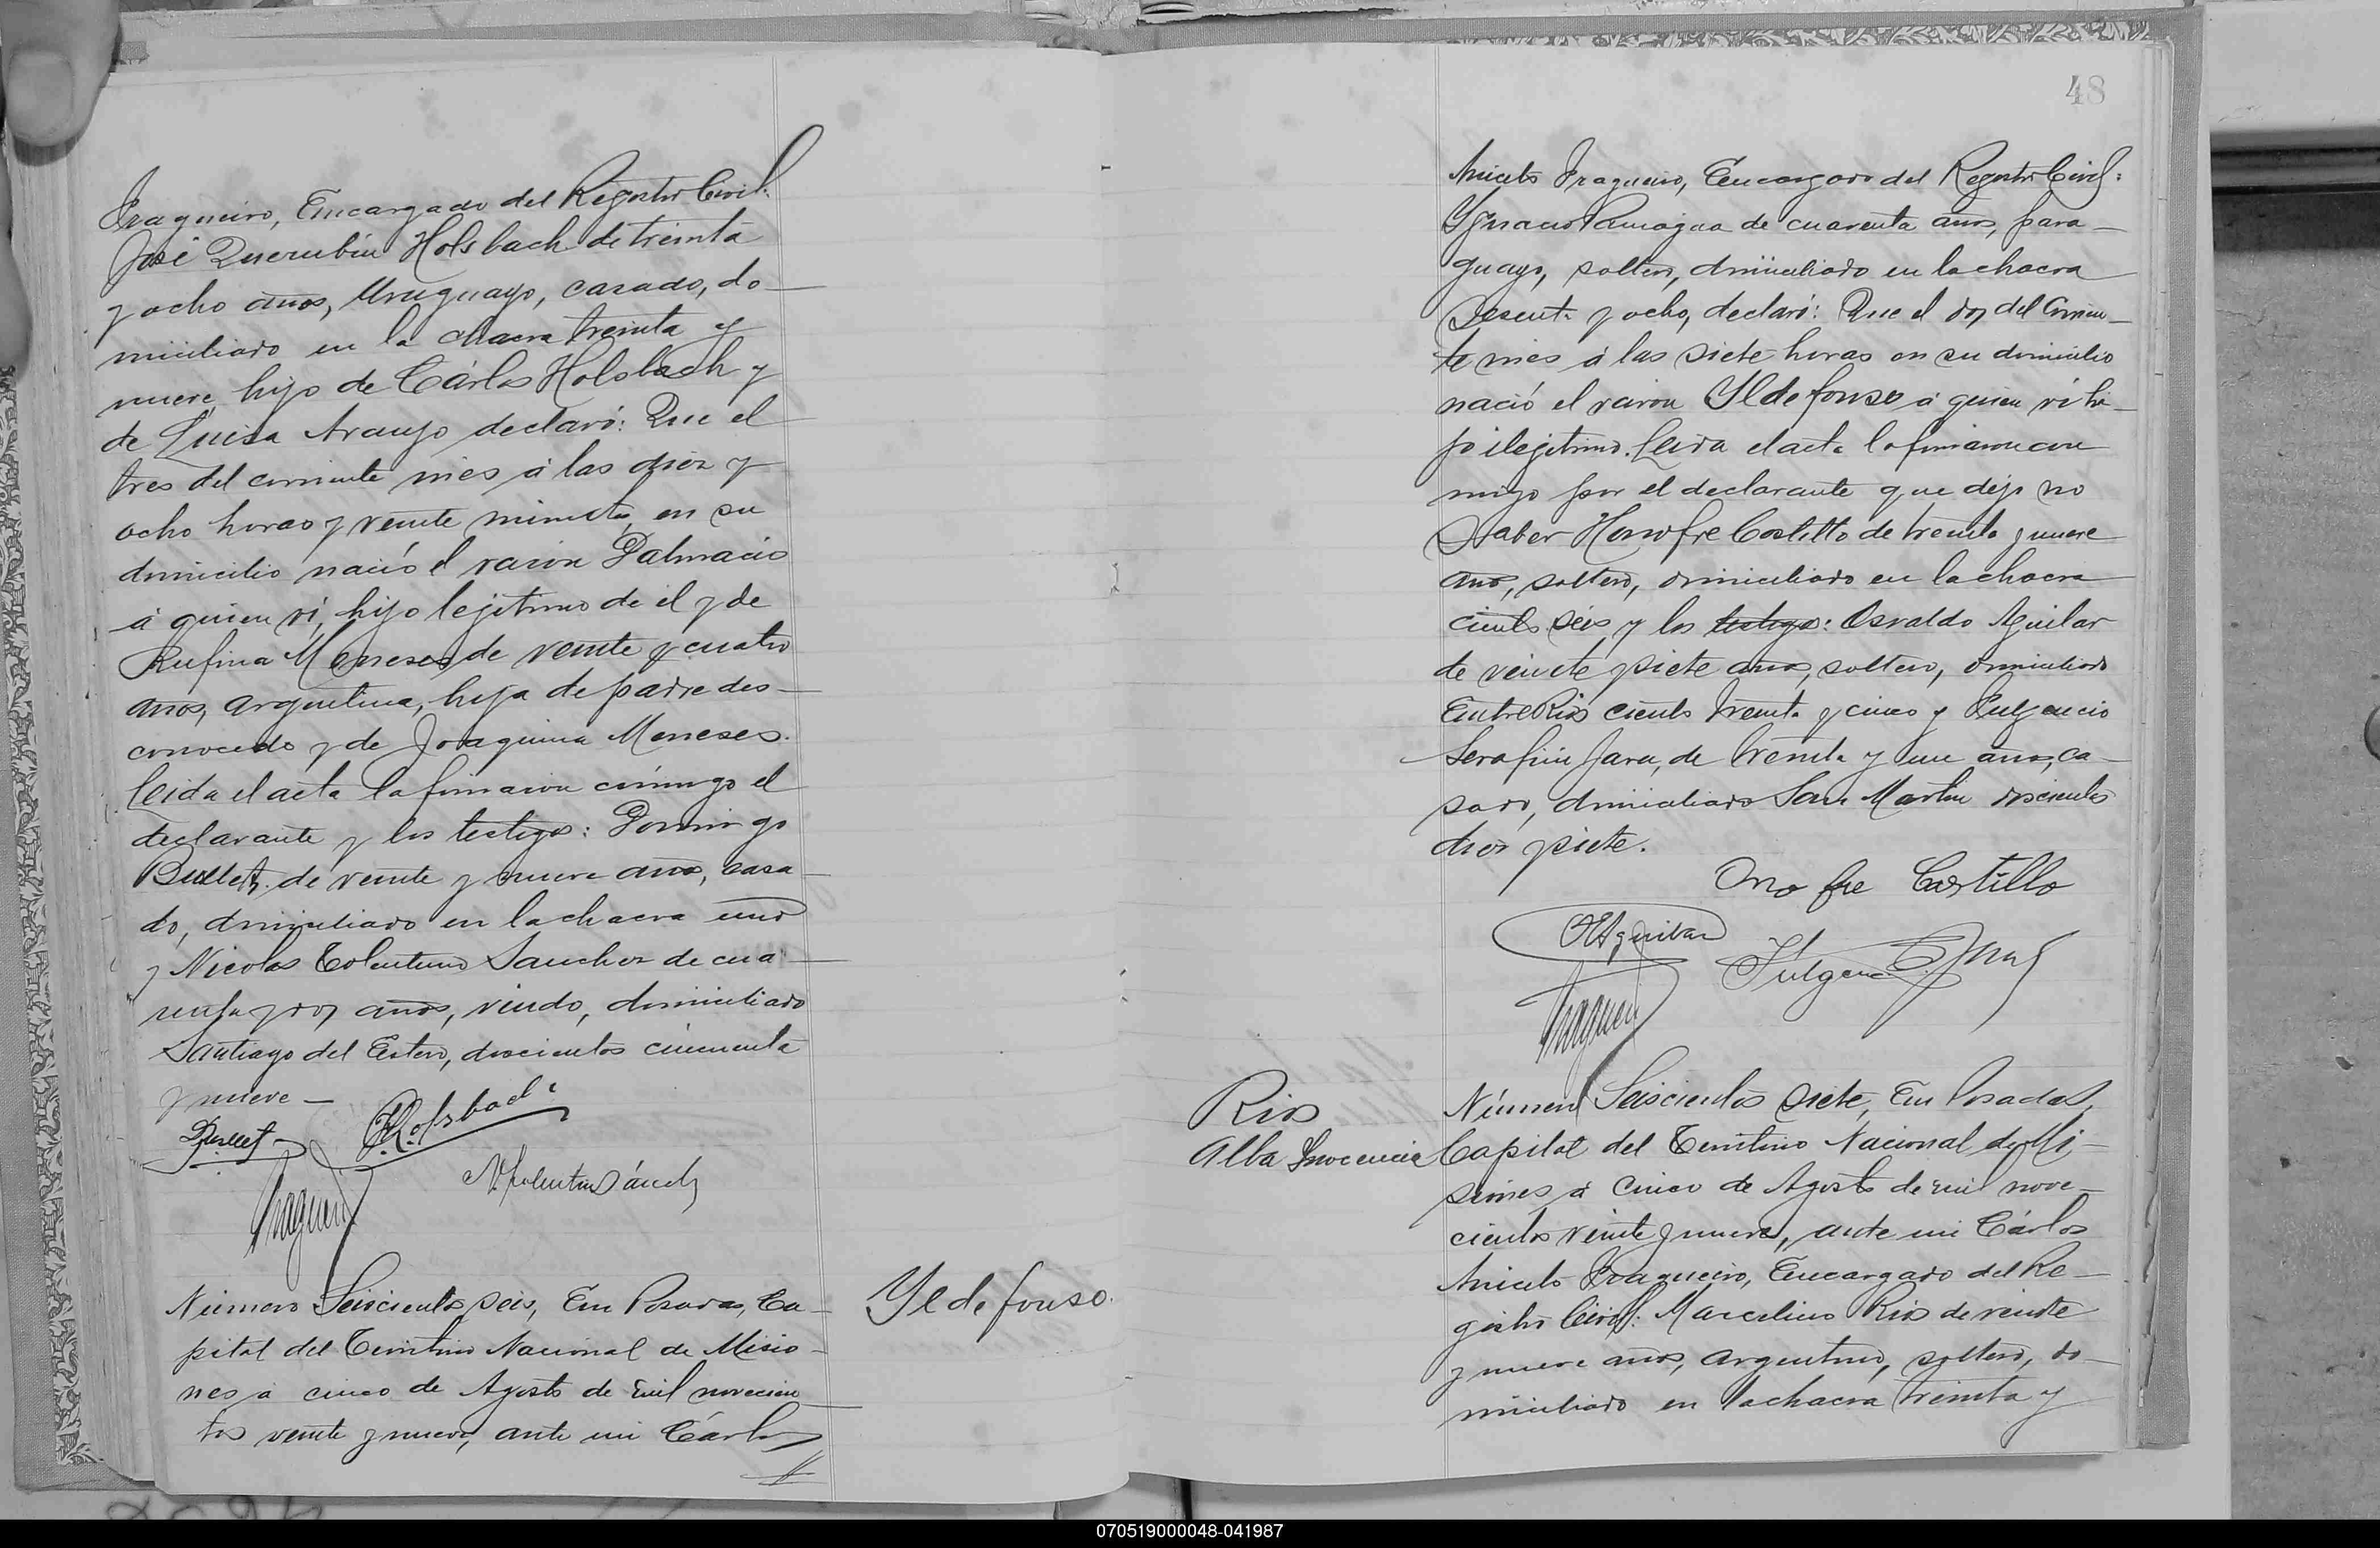 Fragueiro, Encargado del Registro Civil:
José Querubín Holsbach de treinta
y ocho años, Uruguayo, casado, do-
miciliado en la chacra treinta y
nueve, hijo de Cárlos Holsbach y
de Luisa Araujo declaró: Que el
tres del corriente mes á las diez y
ocho horas y veinte minutos, en su
domicilio nació el varon Dalmacio
á quien ví, hijo lejitimo de el y de
Rufina Meneses de veinte y cuatro
años, argentina, hija de padre des-
conocido y de Joaquina Meneses.
Leida el acta la firmaron conmigo el
declarante y los testigos: Domingo
de veinte y nueve años, casa-
do, domiciliado en la chacra uno
y Nicolas Tolentino Sanchez de cua-
renta y dos años, viudo, domiciliado
Santiago del Estero, doscientos cincuenta
y nueve—
Holsbach
N. Tolentino Sánchez
Número Seiscientos seis, En Posadas, Ca-
pital del Territorio Nacional de Misio-
nes á cinco de Agosto de mil novecien-
tos veinte y nueve, ante mi Cárlos
Yldefonso.
48
Aniceto Fragueiro, Encargado del Registro Civil:
Ygnacio de cuarenta años, para-
guayo, soltero, domiciliado en la chacra
Sesenta y ocho, declaró: Que el dos del corrien-
te mes á las siete horas en su domicilio
nació el varon Yldefonso á quien ví hi-
jo ilejitimo. Leida el acta la firmaron con-
migo por el declarante que dijo no
saber Honofre Castillo de treinta y nueve
años, soltero, domiciliado en la chacra
ciento seis y los testigos: Osvaldo Aguilar
de veinte y siete años, soltero, domiciliado
Entre Rios ciento treinta y cinco y Fulgencio
Serafin Jara, de treinta y un años, ca-
sado, domiciliado San Martin doscientos
diez y siete.
Onofre Castillo
O Aguilar
Fulgencio S Jara
Rios
Alba Inocencia
Número Seiscientos siete, En Posadas,
Capital del Territorio Nacional de Mi-
siones á cinco de Agosto de mil nove-
cientos veinte y nueve, ante mi Cárlos
Aniceto Fragueiro, Encargado del Re-
gistro Civil: Marcelino Rios de veinte
y nueve años, argentino, soltero, do-
miciliado en la chacra treinta y
070519000048-041987